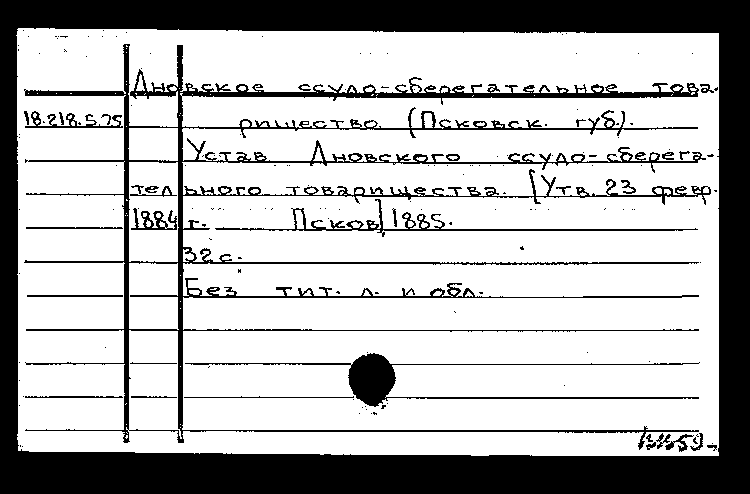 Дновское ссудо-сберегательное това-
18.218.5.75 рищество (Псковск. губ.).
Устав Дновского ссудо-сберега-
тельного товарищества. [Утв. 23 февр.
1884 г. Псков], 1885.
32 с.
Без тит. л. и обл.